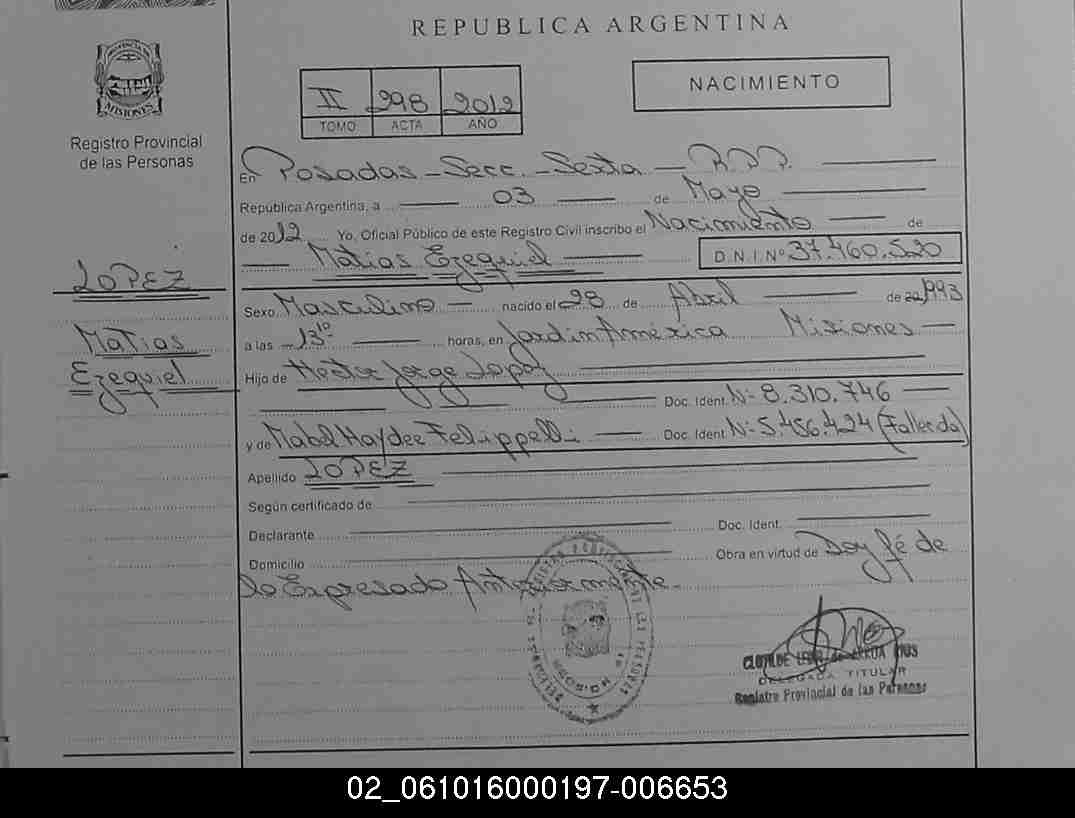 REPUBLICA ARGENTINA
PROVINCIA DE
MISIONES
Registro Provincial
de las Personas
II 298 2012
TOMO ACTA AÑO
NACIMIENTO
En Posadas - Secc. - Sexta - R.P.P.
República Argentina, a 03 de Mayo
de 2012 Yo, Oficial Público de este Registro Civil inscribo el Nacimiento de
Matias Ezequiel D.N.I. Nº 37.460.520
LOPEZ
Matias
Ezequiel
Sexo Masculino nacido el 28 de Abril de 1993
a las 13 10 horas, en Jardin América Misiones
Hijo de Hestor Jorge Lopez
Doc. Ident. Nº 8.310.746
y de Mabel Haydee Felippelli Doc. Ident Nº 5.456.424 (Fallecida)
Apellido LOPEZ
Según certificado de
Declarante Doc. Ident.
Domicilio Obra en virtud de Doy fé de
lo Expresado Anteriormente.
CLOTILDE
DELEGADA TITULAR
Registro Provincial de las Personas
02_061016000197-006653